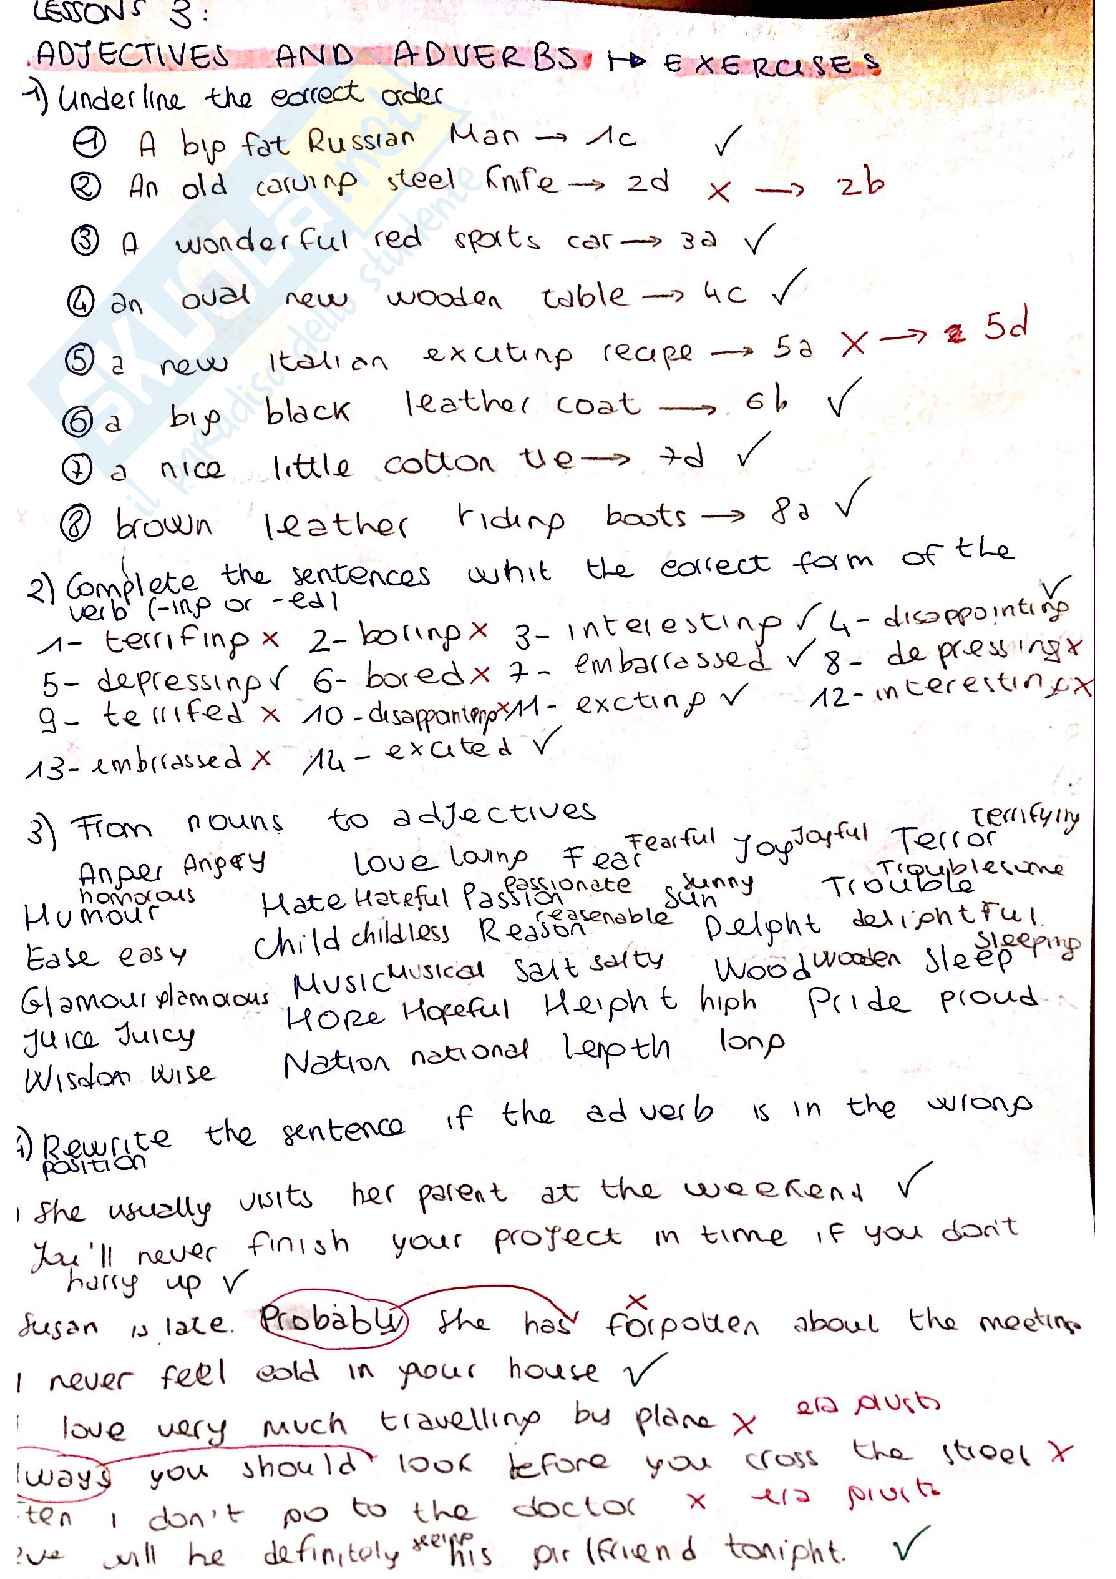 LESSONS 3:
ADJECTIVES AND ADVERBS. EXERCISES
1) Underline the correct order
① A big fat Russian Man → 1c ✓
② An old carving steel knife → 2d x → 2b
③ A wonderful red sports car → 3a ✓
④ an oval new wooden table → 4c ✓
⑤ a new Italian exciting recipe → 5a X → 5d
⑥ a big black leather coat → 6b ✓
⑦ a nice little cotton tie → 7d ✓
⑧ brown leather riding boots → 8a ✓
2) Complete the sentences whit the correct form of the
verb (-ing or -ed)
1- terrifing x 2- boring x 3- interesting ✓ 4- disappointing ✓
5- depressing ✓ 6- bored x 7- embarrassed ✓ 8- depressing x
9- terrifed x 10- disappointing x 11- excting ✓ 12- interesting x
13- embrrassed x 14- excited ✓
3) From nouns to adjectives
Anger Angry Love loving Fear Fearful Joy Joyful Terror terrifying
Humour homorous Hate Hateful Passion passionate sun sunny Trouble Troublesome
Ease easy Child childless Reason reasenable Delight delightful
Glamour glamorous Music Musical Salt salty Wood Wooden Sleep sleeping
Juice Juicy Hope Hopeful Height high Pride proud
Wisdom wise Nation national length long
1) Rewrite the sentence if the adverb is in the wrong
position
She usually visits her parent at the weekend ✓
You'll never finish your project in time if you don't
hurry up ✓
Susan is late. Probably she has forgotten about the meeting x
I never feel cold in your house ✓
love very much travelling by plane x era giusta
lways you should look before you cross the street x
ten I don't go to the doctor x era giusta
will he definitely seeing his girlfriend tonight. ✓
SKUOLA.net
il paradiso dello studente